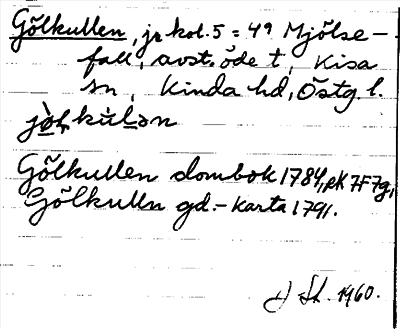 Gölkullen, jr kol. 5 = 4⁹ Mjölse-
fall, avst. öde t, Kisa
sn, Kinda hd, Östg. l.
jø̀lkùlən
Gölkullen dombok 1784, ek 7F7g,
Gölkulln gd.- karta 1791.
1960.